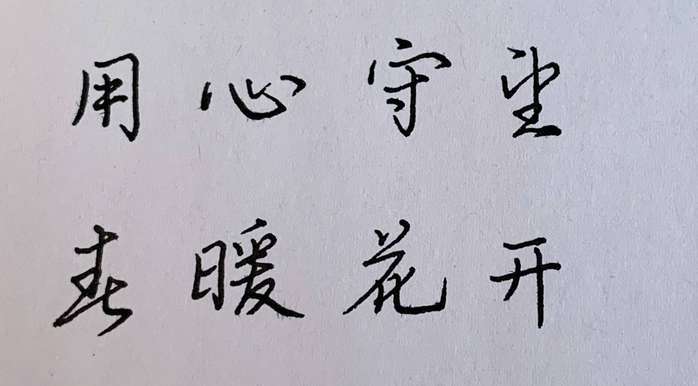 用心守望
春暖花开